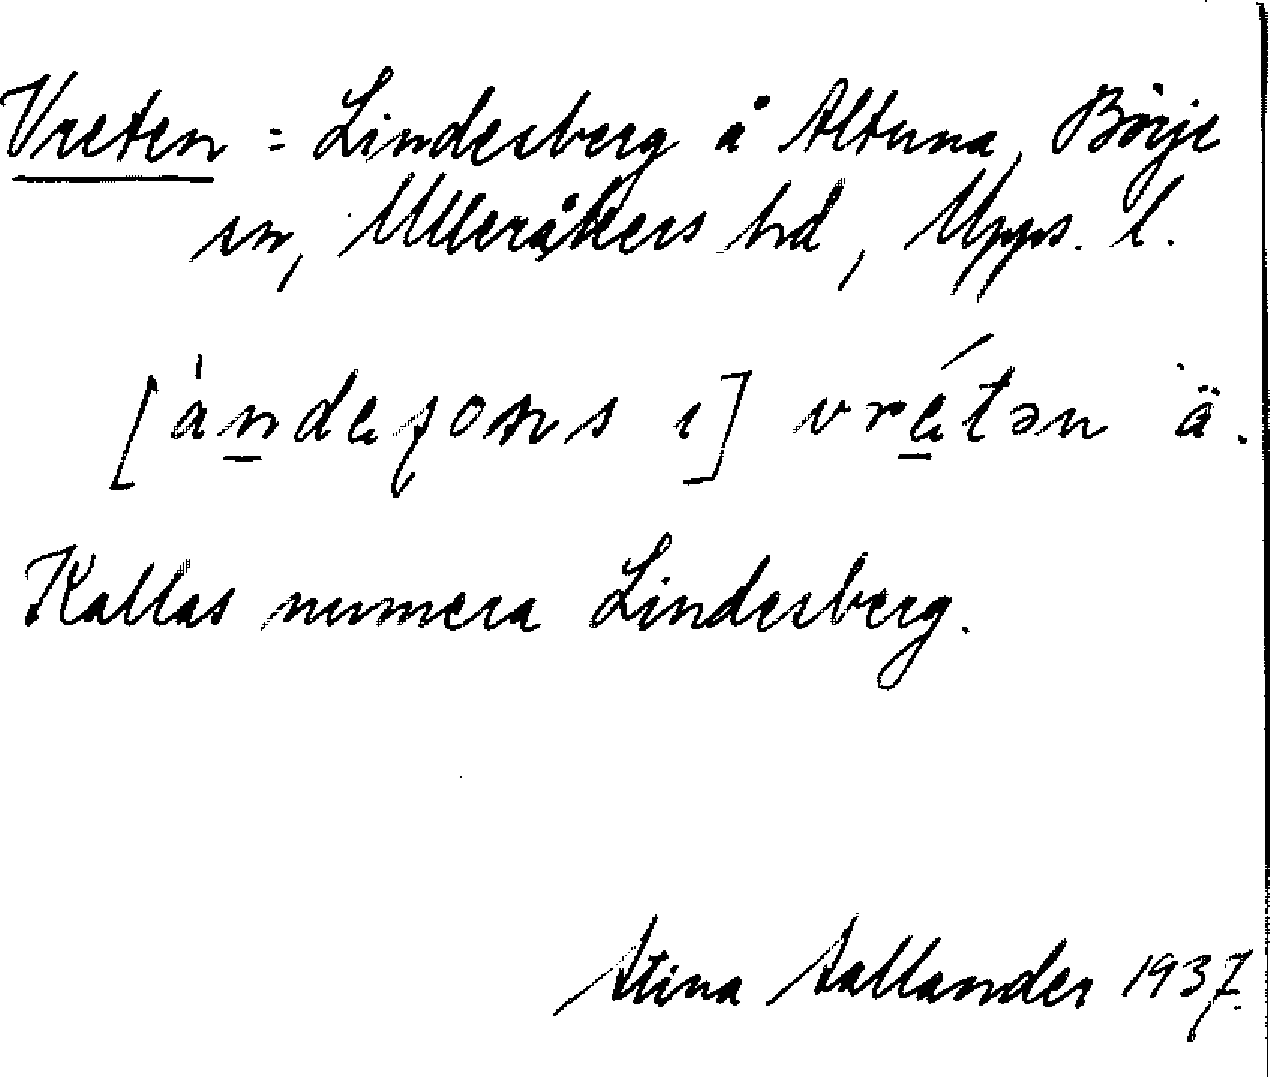 Vreten = Lindesberg å Altuna, Börje
sn, Ulleråkers hd, Upps. l.
[àndeʂons ɩ] vrétən ä.
Kallas numera Lindesberg.
Stina Sallander 1937.